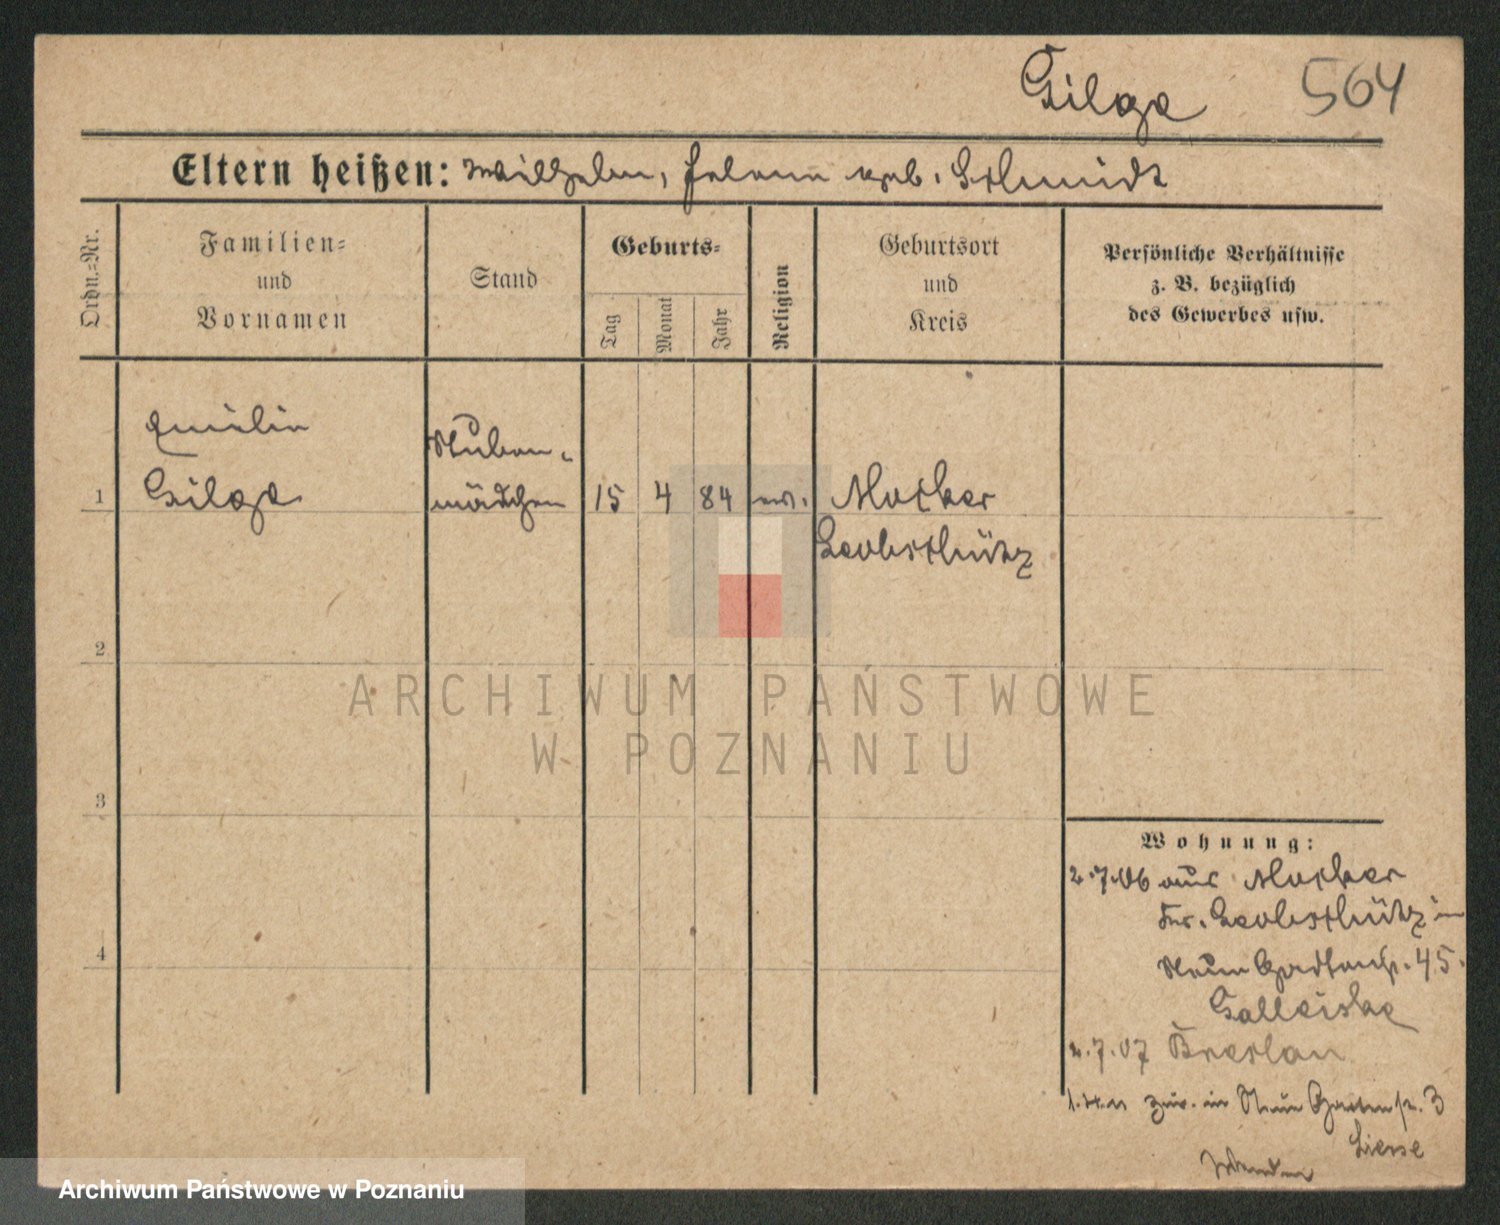 Gilge 564
Eltern heißen: Wilhelm, Helene geb. Schmidt
Ordn.-Nr.
Familien-
und
Vornamen
Stand
Geburts-
Tag
Monat
Jahr
Religion
Geburtsort
und
Kreis
Persönliche Verhältnisse
z. B. bezüglich
des Gewerbes usw.
Emilie
Gilge
Stuben-
mädchen
1
15 4 84 ev.
Mocker
Leobschütz
2
3
4
Wohnung:
2.7.06 aus Mocker
Kr. Leobschütz in
Neue Gartenstr. 45.
Galleiske
2.7.07 Breslau
zur. in Neue Gartenstr. 3
Liesse
Wenden
ARCHIWUM PAŃSTWOWE
W POZNANIU
Archiwum Państwowe w Poznaniu